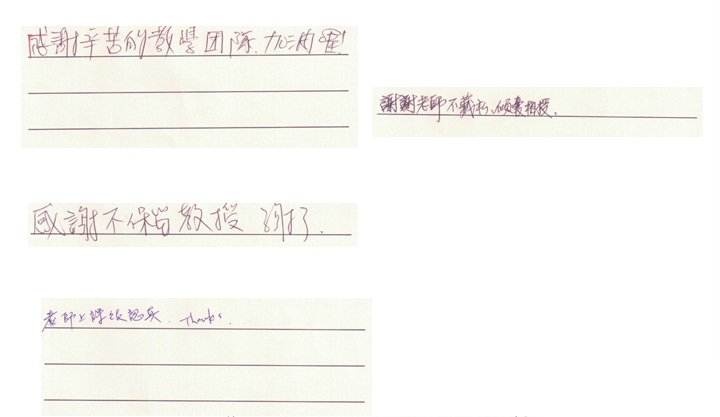 感謝辛苦的教學团隊.加油喔!
謝謝老師不藏私、傾囊相授.
感謝不保留教授 謝了.
老師上課很認真. Thanks.